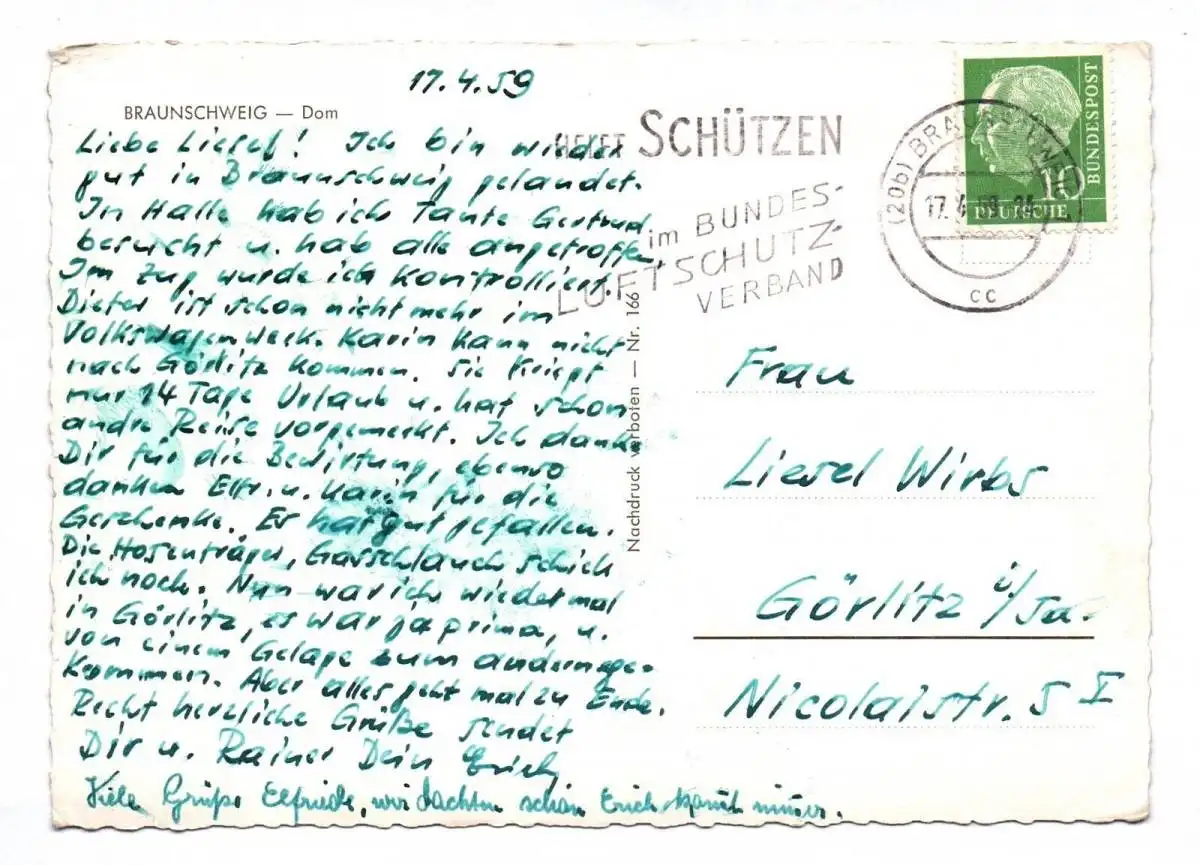 17.4.59
BRAUNSCHWEIG — Dom
Liebe Liesel! Ich bin wieder
gut in Braunschweig gelandet.
In Halle hab ich Tante Gertrud
besucht u. hab alle angetroffen.
Im Zug wurde ich kontrolliert.
Dieter ist schon nicht mehr im
Volkswagenwerk. Karin kann nicht
nach Görlitz kommen. Sie kriegt
nur 14 Tage Urlaub u. hat schon
andre Reise vorgemerkt. Ich danke
Dir für die Bewirtung, ebenso
danken Elfr. u. Karin für die
Geschenke. Es hat gut gefallen.
Die Hosenträger, Gasschlauch schick
ich noch. Nun war ich wiedermal
in Görlitz, es war ja prima, u.
von einem Gelage zum andern ge-
kommen. Aber alles geht mal zu Ende.
Recht herzliche Grüße sendet
Dir u. Rainer Dein Erich
Viele Grüße Elfriede, wir dachten schon Erich kommt nimmer.
Nachdruck verboten — Nr. 166
HELFT SCHÜTZEN
im BUNDES-
LUFTSCHUTZ-
VERBAND
(20b) BRAUNSCHWEIG
17. 4. 59
cc
DEUTSCHE
BUNDESPOST
10
Frau
Liesel Wirbs
Görlitz i/Sa.
Nicolaistr. 5 I